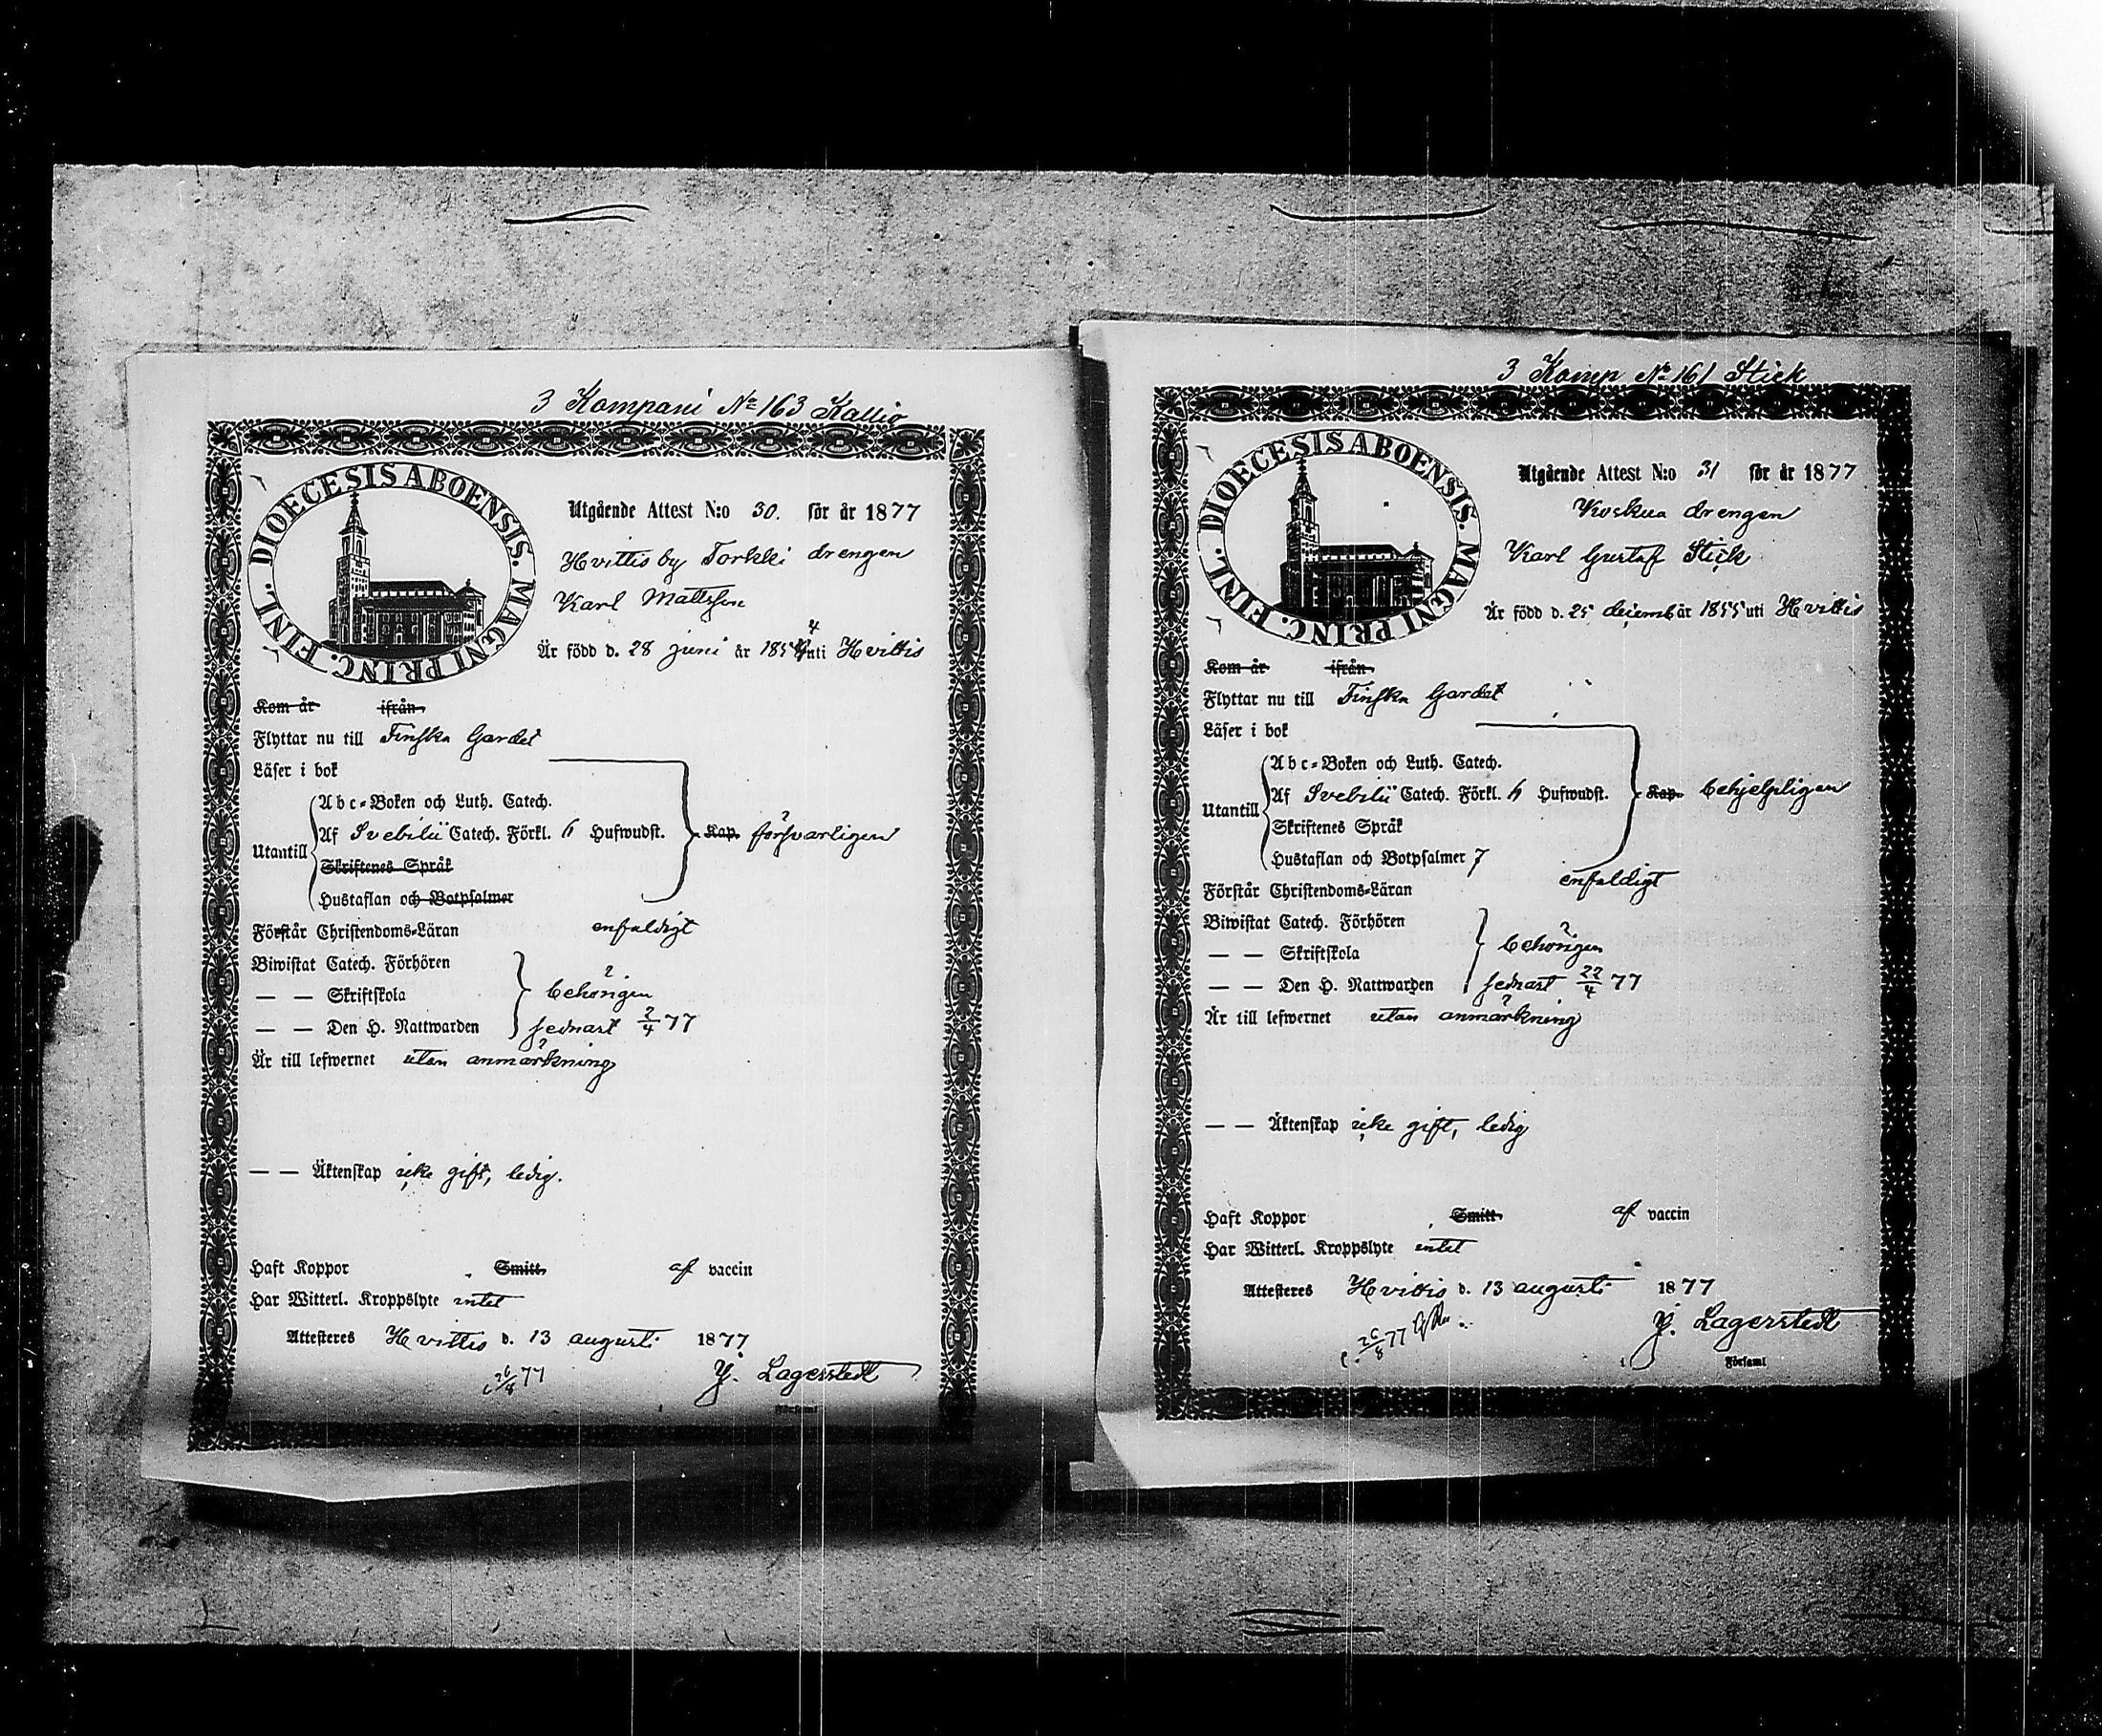 3 Kompani No 163 Kallio
DIOECESIS ABOENSIS. MAGNI PRINC. FINL.
Utgående Attest N:o 30. för år 1877
Hvittis by Torkki drengen
Karl Mattsson
Är född d. 28 juni år 1854 uti Hvittis
Kom år ifrån
Flyttar nu till Finska Gardet
Läser i bok
Utantill
Abc-Boken och Luth. Catech.
Af Svebilii Catech. Förkl. 6 Hufwudst. Kap. försvarligen
Skriftenes Språk
Hustaflan och Botpsalmer
Förstår Christendoms-Läran enfaldigt
Biwistat Catech. Förhören
— — Skriftskola behörigen
— — Den H. Nattwarden sednast 2/4 77
Är till lefwernet utan anmärkning
— — Äktenskap icke gift, ledig.
Haft Koppor Smitt. af vaccin
Har Witterl. Kroppslyte intet
Attesteres Hvittis d. 13 augusti 1877
26/8 77 Y. Lagerstedt
Församl
3 Komp No 161 Stick
DIOECESIS ABOENSIS. MAGNI PRINC. FINL.
Utgående Attest N:o 31 för år 1877
Koskua drengen
Karl Gustaf Stick
Är född d. 25 decemb år 1855 uti Hvittis
Kom år ifrån
Flyttar nu till Finska Gardet
Läser i bok
Utantill
Abc-Boken och Luth. Catech.
Af Svebilii Catech. Förkl. 6 Hufwudst. Kap. behjelpligen
Skriftenes Språk
Hustaflan och Botpsalmer 7
Förstår Christendoms-Läran enfaldigt
Biwistat Catech. Förhören
— — Skriftskola behörigen
— — Den H. Nattwarden sednast 22/4 77
Är till lefwernet utan anmärkning
— — Äktenskap icke gift, ledig
Haft Koppor Smitt. af vaccin
Har Witterl. Kroppslyte intet
Attesteres Hvittis d. 13 augusti 1877
26/8 77 Y. Lagerstedt
i Församl